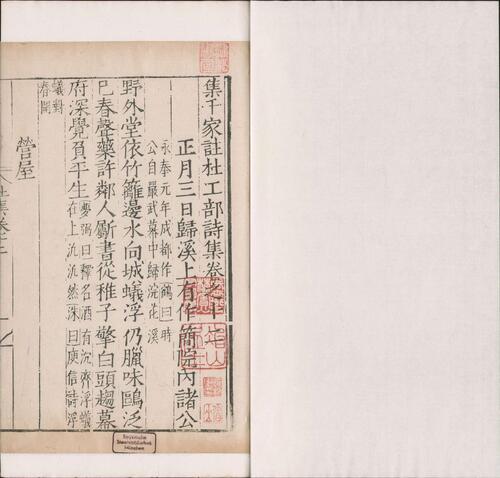 集千家註杜工部詩集卷之十
正月三日歸溪上有作簡院內諸公
永泰元年成都作鶴曰時
公自嚴武幕中歸浣花溪
野外堂依竹籬邊水向城蟻浮仍臘味鷗泛
已春聲藥許鄰人斸書從稚子擎白頭趨幕
府深覺負平生夢弼曰釋名酒有沉齊浮蟻
在上汎汎然洙曰庾信詩浮
蟻對
春開
營屋
杜集卷十
Bayerische
Staatsbibliothek
München